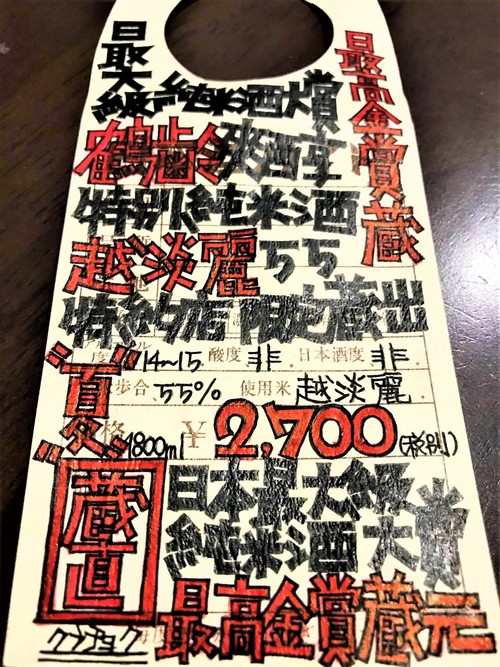 日最大級純米酒大賞
日最高金賞蔵
鶴齢
特別純米酒
越淡麗55
特約店限定蔵出
度 14~15 酸度 非. 日本酒度 非.
"夏"
歩合 55% 使用米 越淡麗
格 1800ml ¥2,700(税別)
蔵直
日本最大級
純米酒大賞
最高金賞蔵元